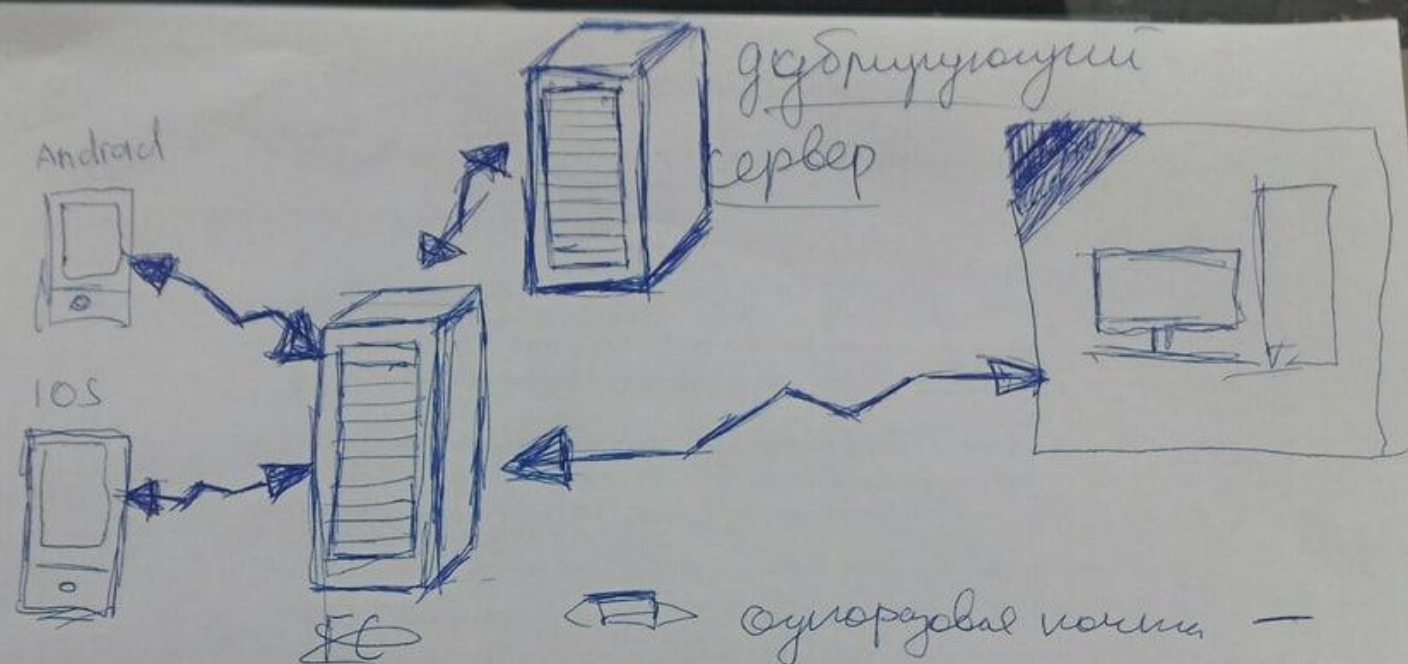 дублирующий
сервер
Android
IOS
одноразовая почта —